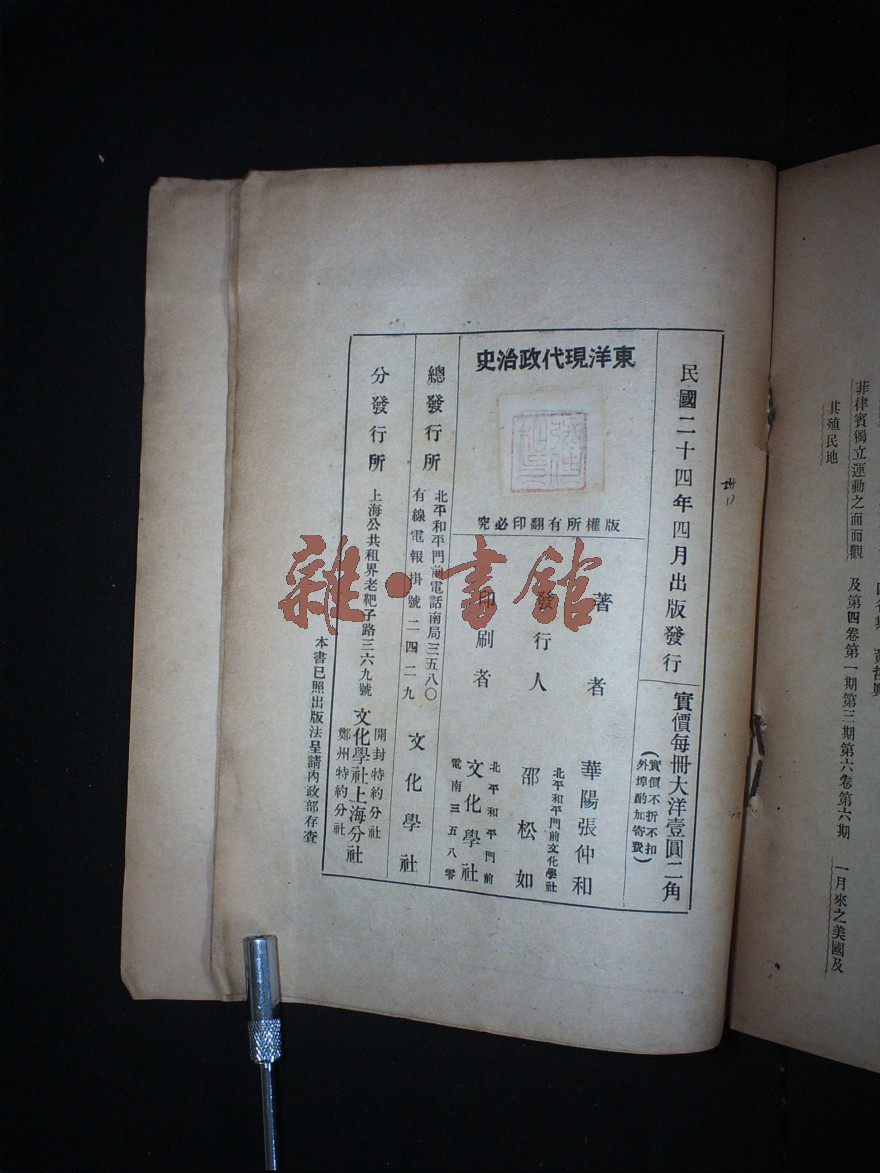 菲律賓獨立運動之面面觀
及第四卷第一期第三期第六卷第六期
一月來之美國及
其殖民地
民國二十四年四月出版發行
實價每冊大洋壹圓二角
(實價不折不扣
外埠酌加寄費)
東洋現代政治史
版權所有翻印必究
著者
華陽張仲和
發行人
北平和平門前文化學社
邵松如
印刷者
北平和平門前
文化學社
電南三五八零
總發行所
北平和平門前電話南局三五八〇
有線電報掛號二四二九
文化學社
分發行所
上海公共租界老靶子路三六九號
文化學社上海分社
開封特約分社
鄭州特約分社
本書已照出版法呈請內政部存查
雜·書館